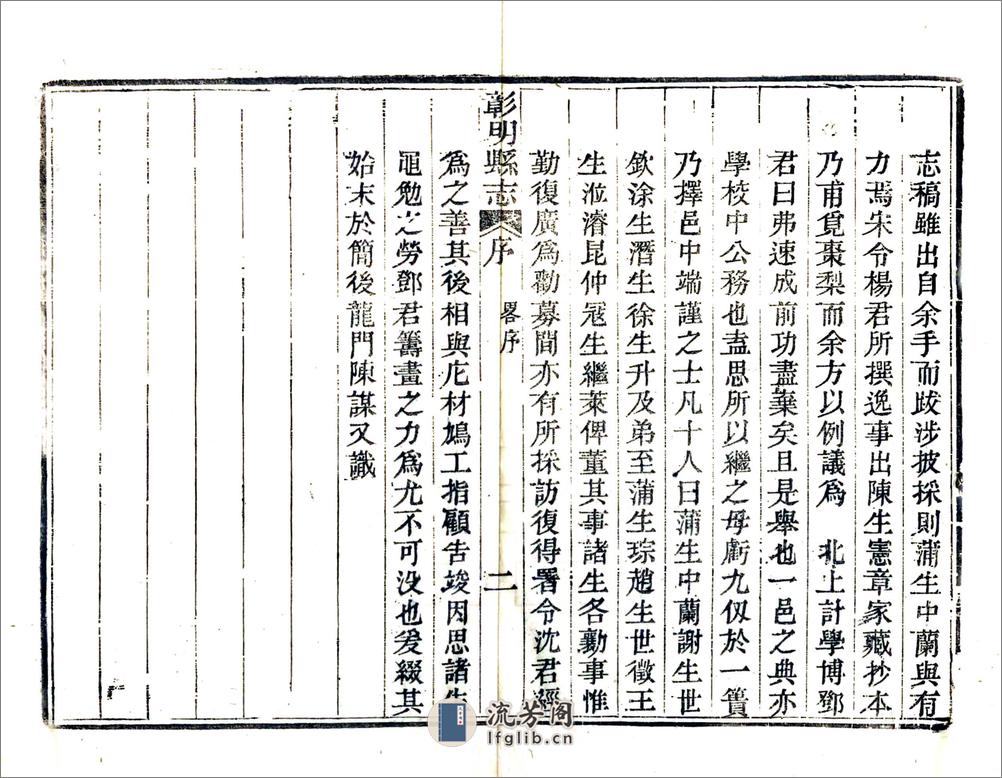 志稿雖出自余手而跋涉披採則蒲生中蘭與有
力焉朱令楊君所撰逸事出陳生憲章家藏抄本
乃甫覓棗梨而余方以例議爲　北上計學博鄧
君曰弗速成前功盡棄矣且是舉也一邑之典亦
學校中公務也盍思所以繼之毋虧九仭於一簣
乃擇邑中端謹之士凡十人曰蒲生中蘭謝生世
欽涂生潛生徐生升及弟至蒲生琮趙生世徵王
生涖濬昆仲冦生繼萊俾董其事諸生各勷事惟
勤復廣爲勸募間亦有所採訪復得署令沈君經
彰明縣志 序 畧序 二
爲之善其後相與庀材鳩工指顧告竣因思諸生
黽勉之勞鄧君籌畫之力爲尤不可没也爰綴其
始末於簡後龍門陳謀又識
流芳阁
lfglib.cn